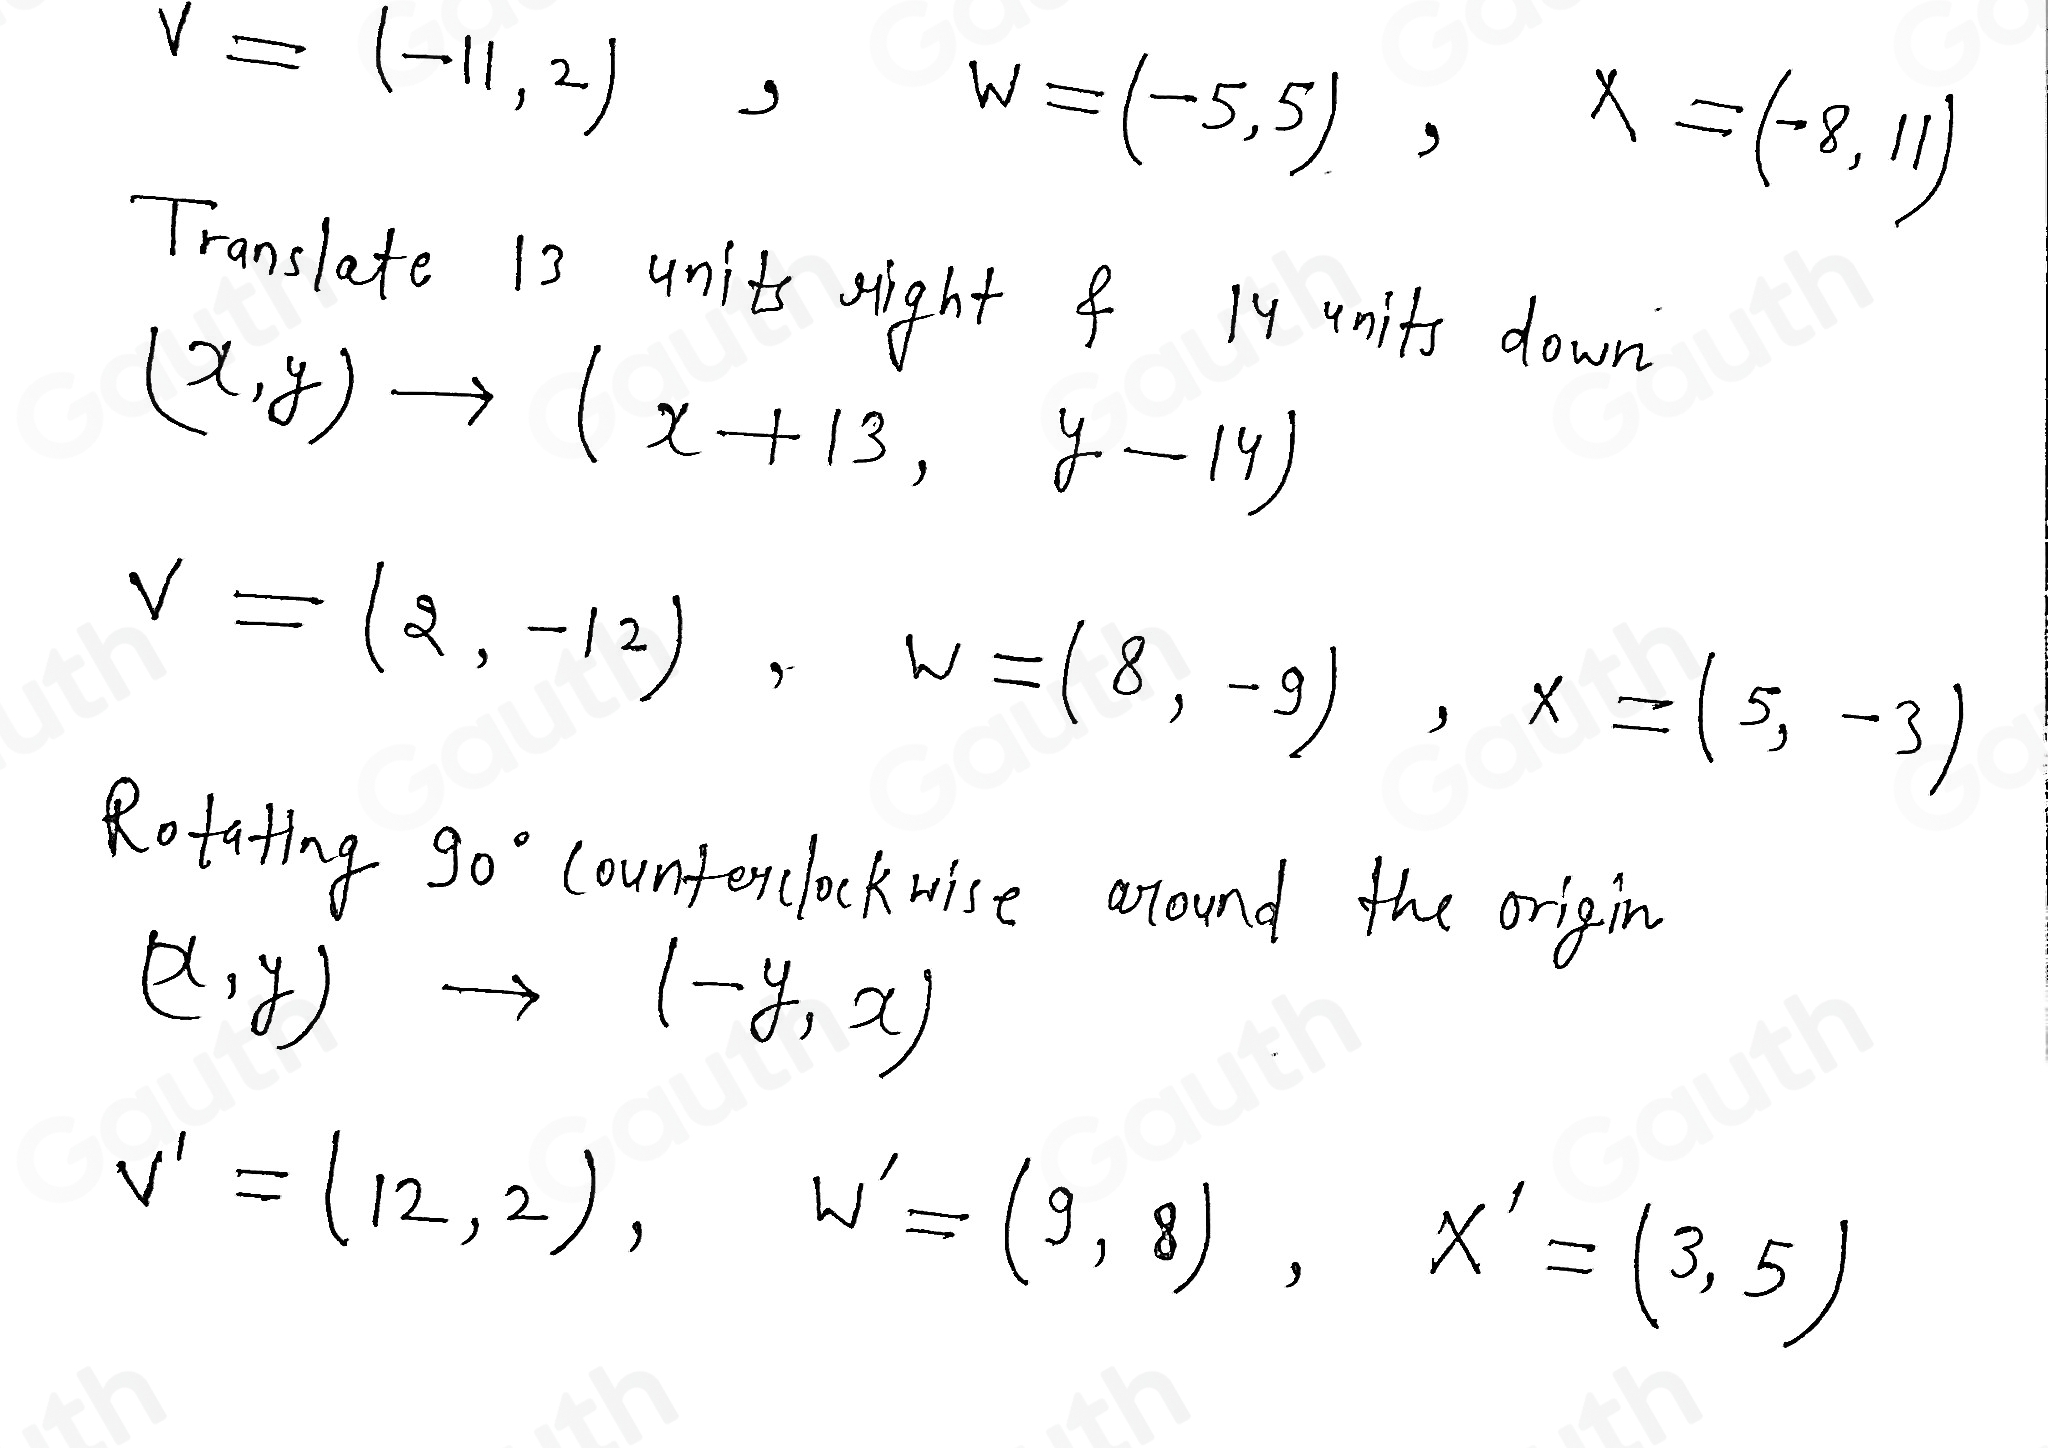 V = (-11, 2) , W = (-5, 5) , X = (-8, 11)
Translate 13 units right & 14 units down
(x, y) → (x + 13, y - 14)
V = (2, -12) , W = (8, -9) , X = (5, -3)
Rotating 90° counterclockwise around the origin
(x, y) → (-y, x)
V' = (12, 2) , W' = (9, 8) , X' = (3, 5)
Gauth